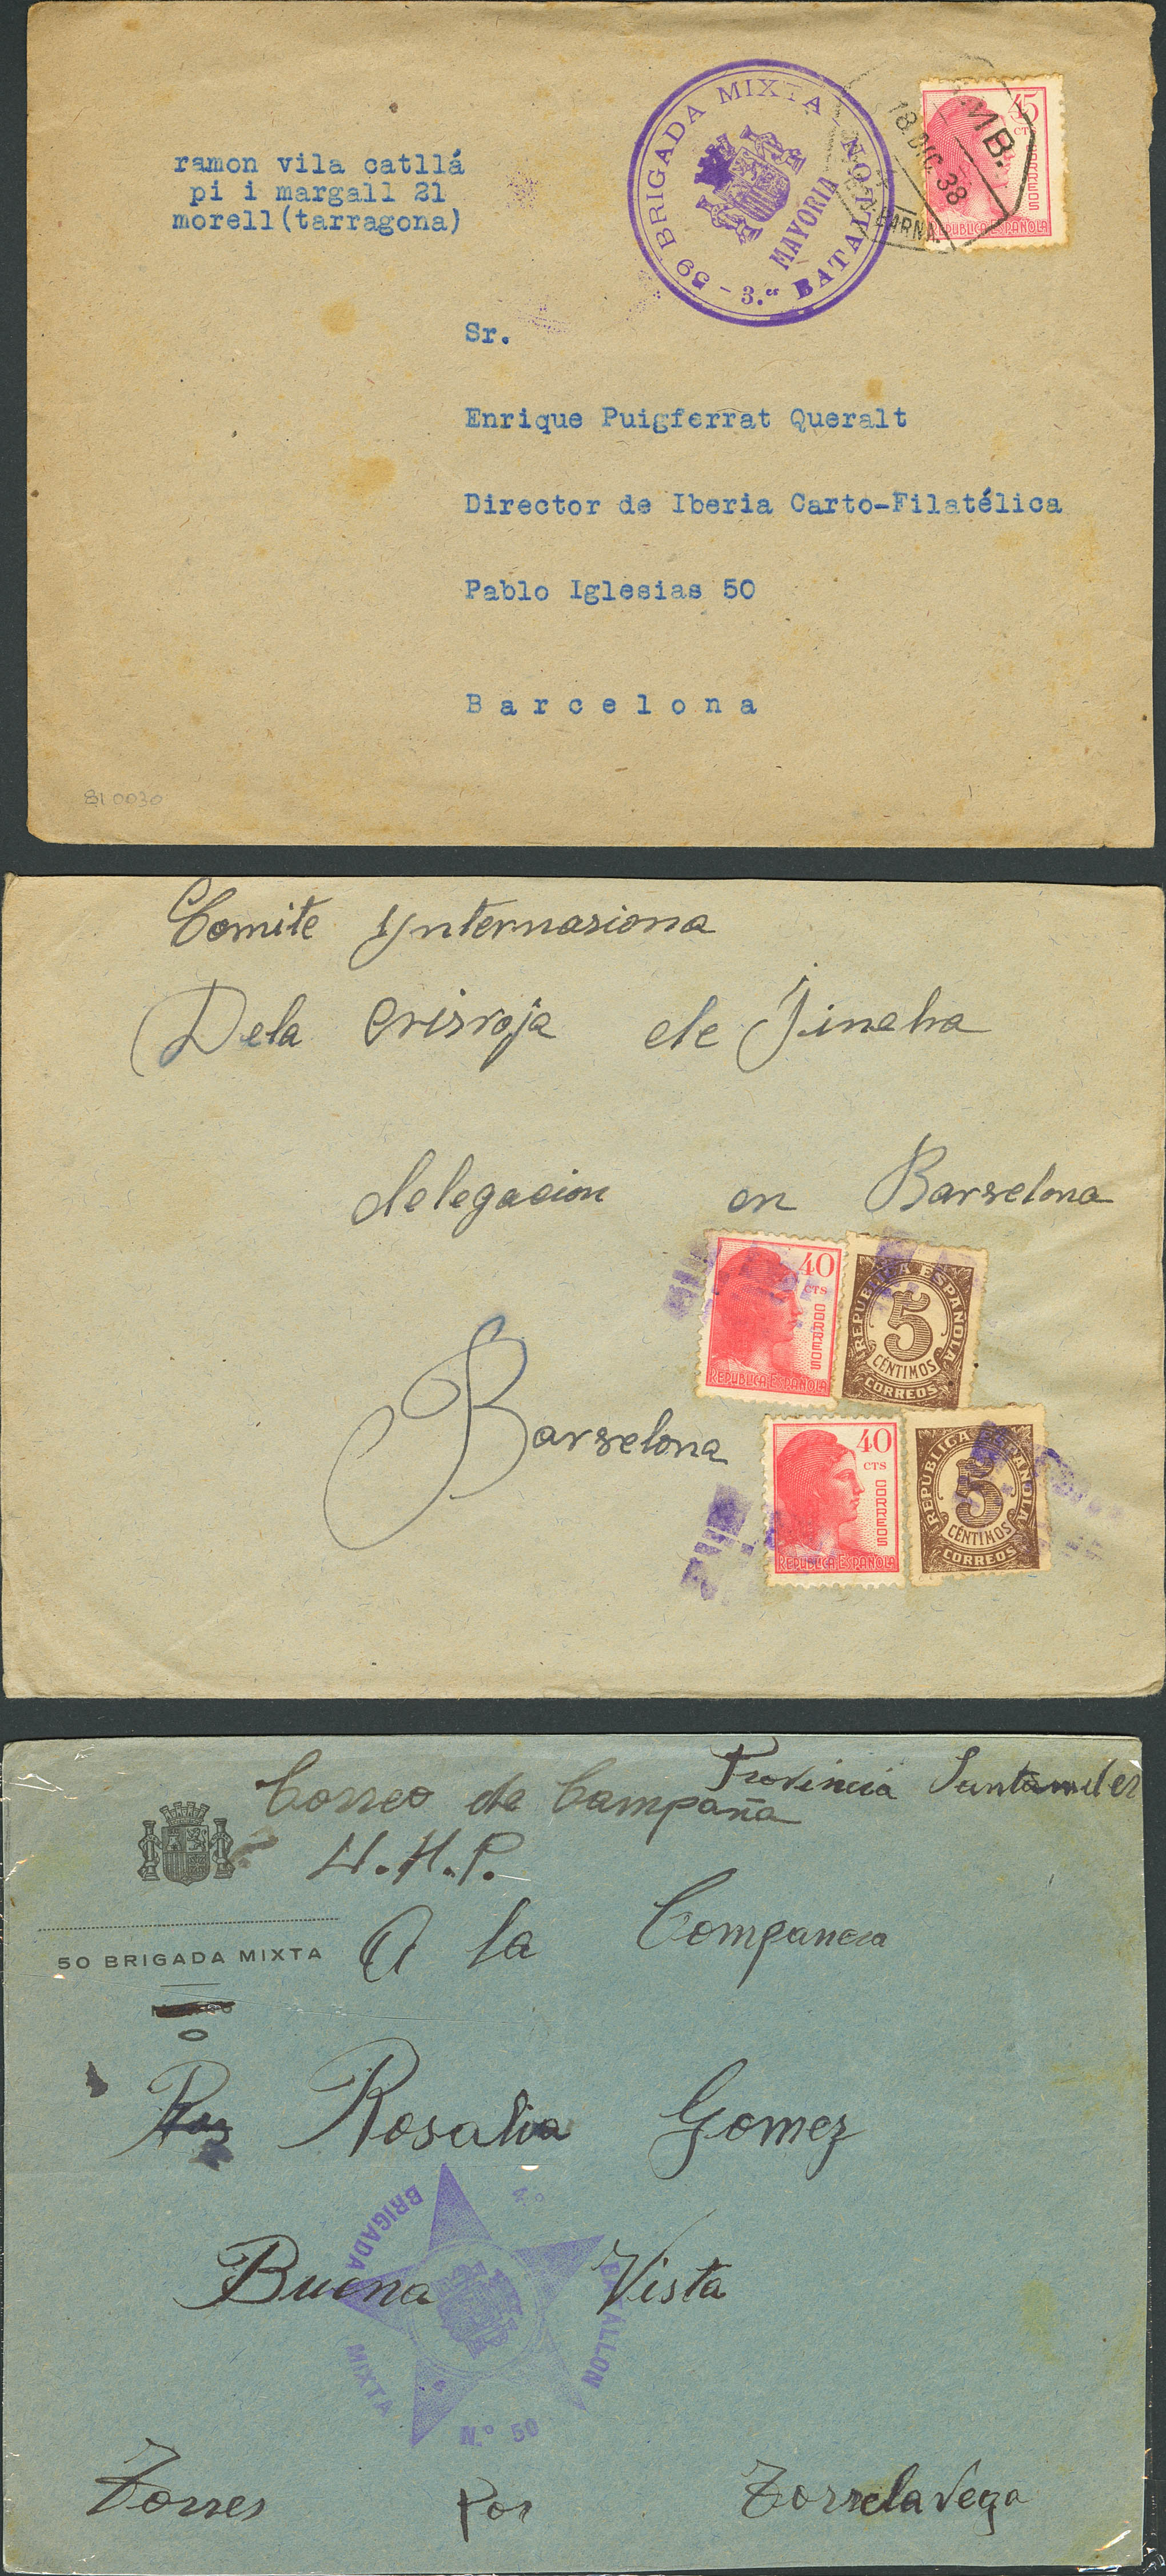 ramon vila catllá
pi i margall 21
morell(tarragona)
59 BRIGADA MIXTA
3.er BATALLON
MAYORIA
AMB.
18.DIC.38
45
CTS
CORREOS
REPUBLICA ESPAÑOLA
Sr.
Enrique Puigferrat Queralt
Director de Iberia Carto-Filatélica
Pablo Iglesias 50
Barcelona
81 0030
Comite Ynternasiona
Dela Crisroja de Jinebra
delegacion en Barselona
40
CTS
CORREOS
REPUBLICA ESPAÑOLA
REPUBLICA ESPAÑOLA
5
CÉNTIMOS
CORREOS
Barselona
40
CTS
CORREOS
REPUBLICA ESPAÑOLA
REPUBLICA ESPAÑOLA
5
CÉNTIMOS
CORREOS
Provincia Santander
Correo de Campaña
U.H.P.
50 BRIGADA MIXTA
A la Companera
Rosalia Gomez
4.º BATALLON
BRIGADA MIXTA
N.º 50
Buena Vista
Torres Por Torrelavega